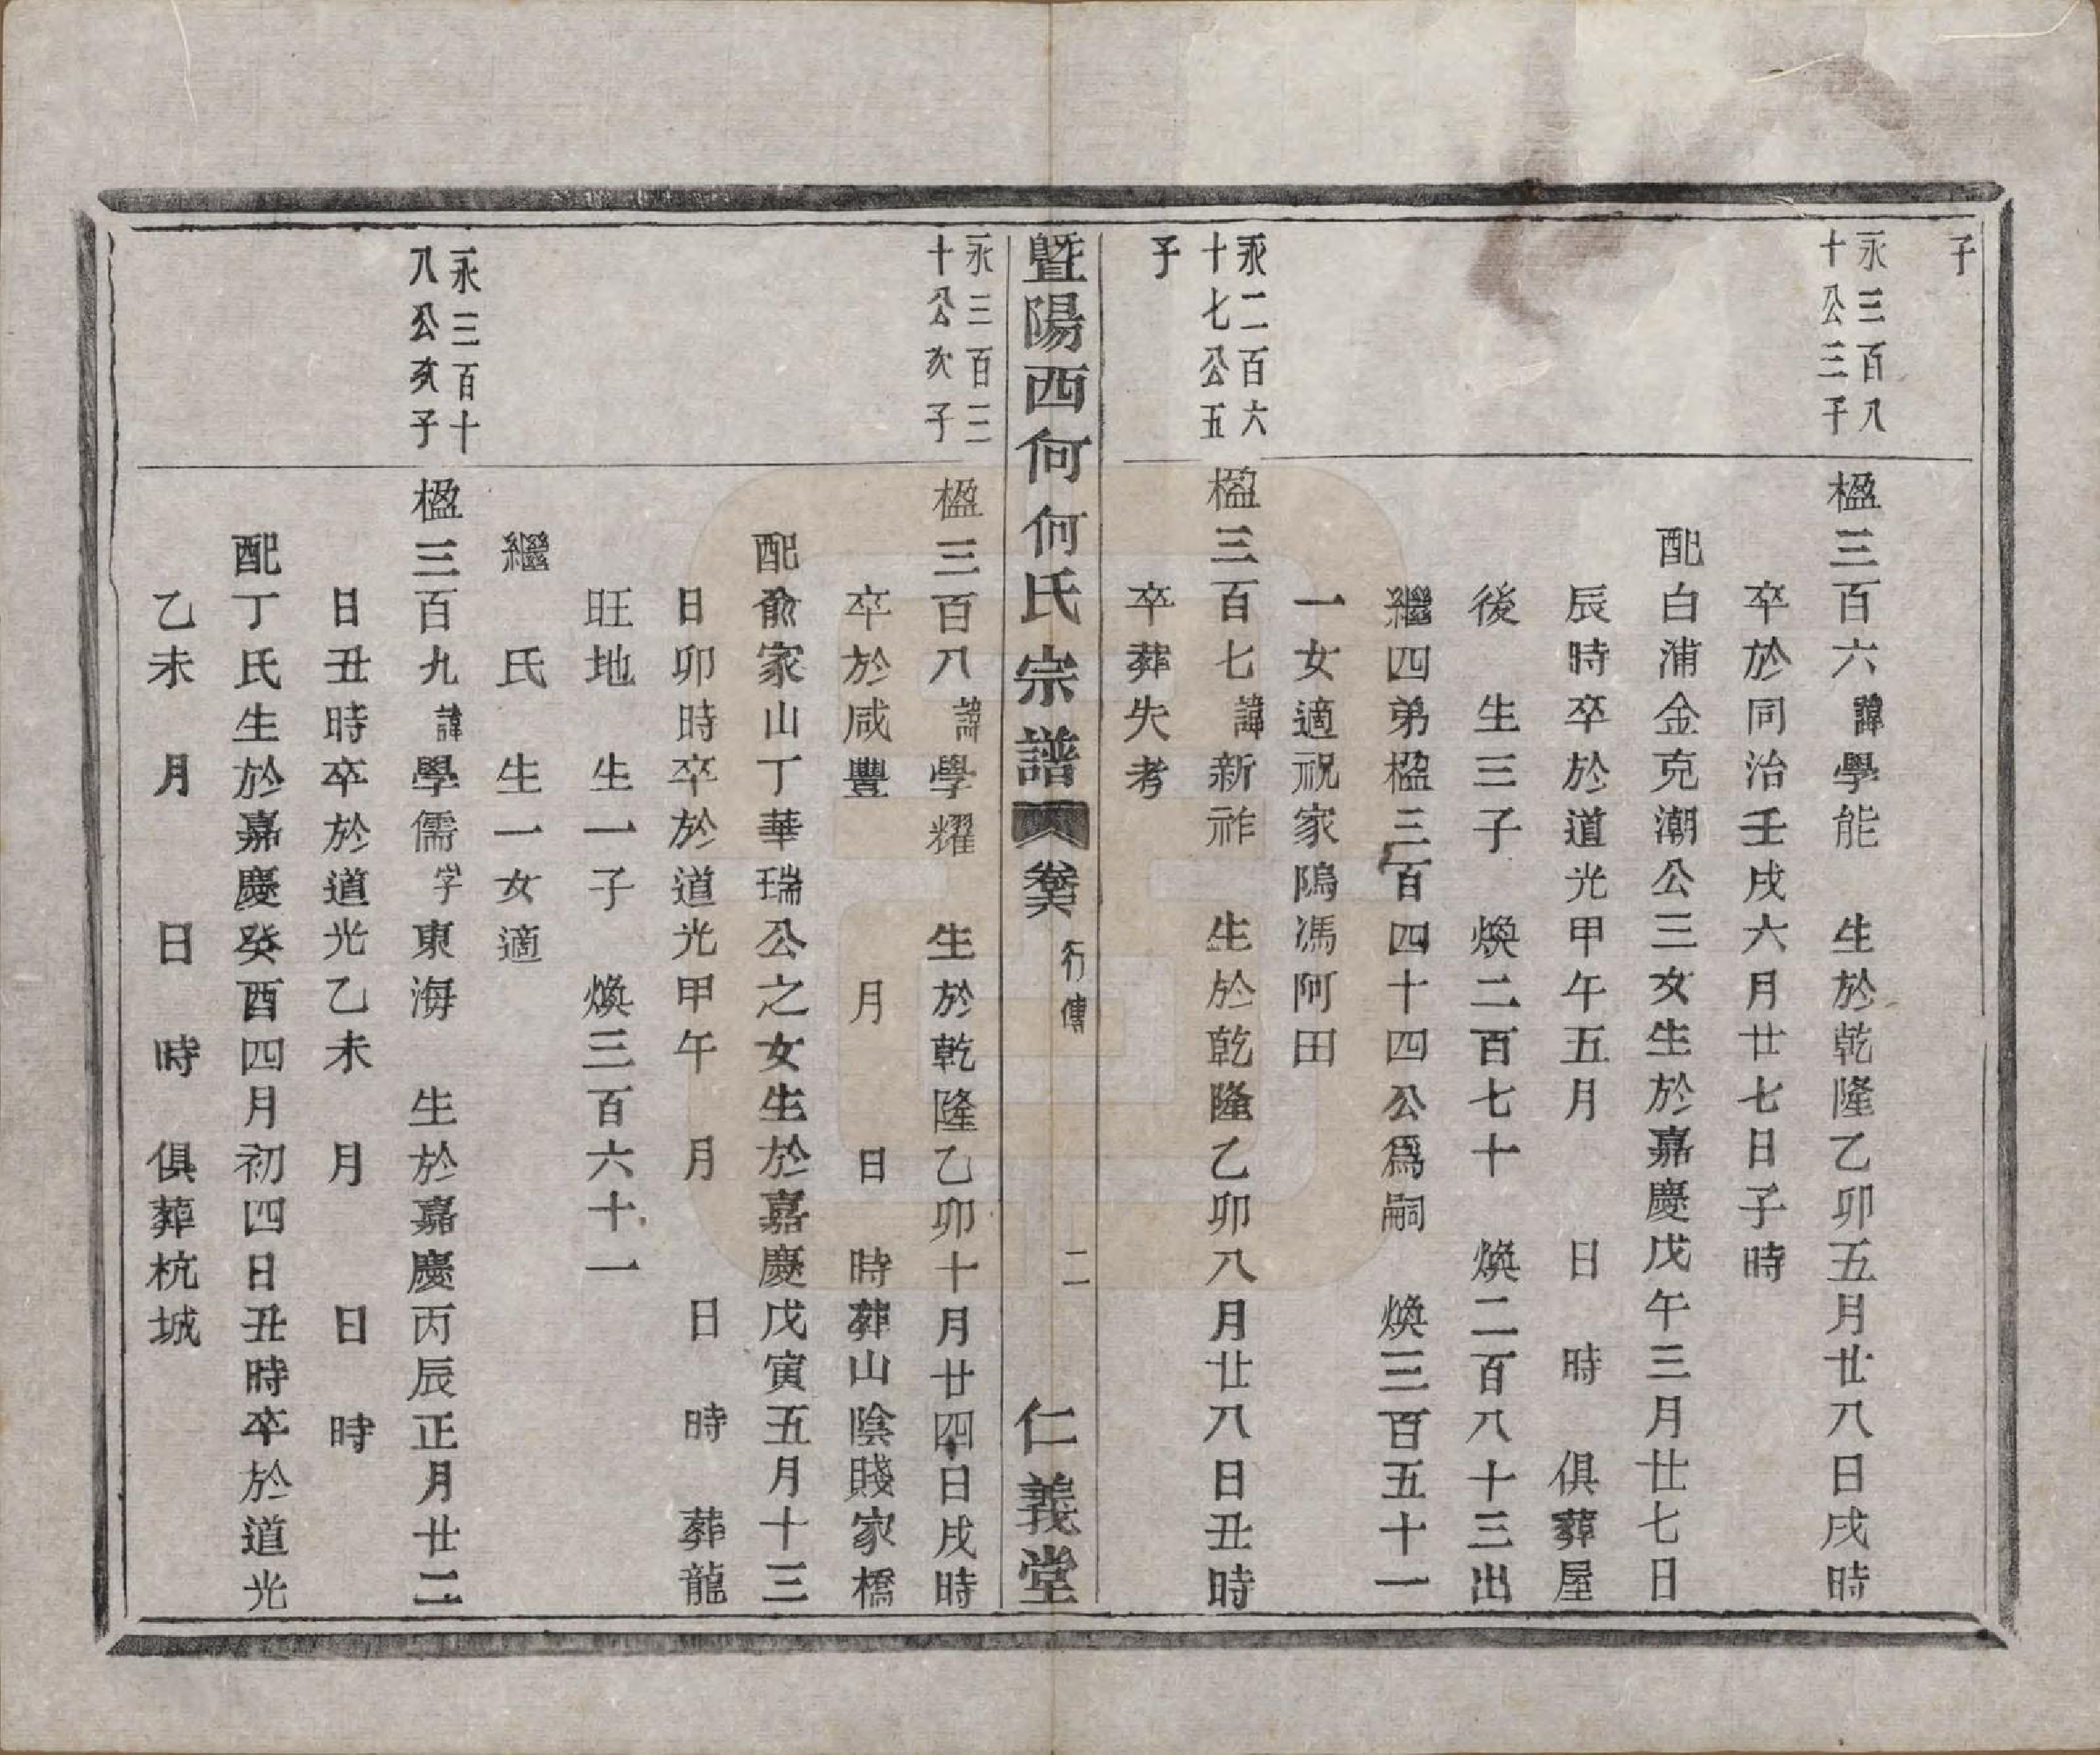 子
永三百八
十公三子
楹三百六諱學能　生於乾隆乙卯五月廿八日戌時
卒於同治壬戌六月廿七日子時
配白浦金克潮公三女生於嘉慶戊午三月廿七日
辰時卒於道光甲午五月　日　時　俱葬屋
後　生三子　煥二百七十　煥二百八十三出
繼四弟楹三百四十四公爲嗣　煥三百五十一
一女適祝家隝馮阿田
永二百六
十七公五
子
楹三百七諱新祚　生於乾隆乙卯八月廿八日丑時
卒葬失考
暨陽西何何氏宗譜　卷六　行傳　二　仁義堂
永三百三
十公次子
楹三百八諱學耀　生於乾隆乙卯十月廿四日戌時
卒於咸豐　月　日　時葬山陰賤家橋
配俞家山丁華瑞公之女生於嘉慶戊寅五月十三
日卯時卒於道光甲午　月　日　時　葬龍
旺地　生一子　煥三百六十一
繼　氏　生一女適
永三百十
八公次子
楹三百九諱學儒字東海　生於嘉慶丙辰正月廿二
日丑時卒於道光乙未　月　日　時
配丁氏生於嘉慶癸酉四月初四日丑時卒於道光
乙未　月　日　時　俱葬杭城